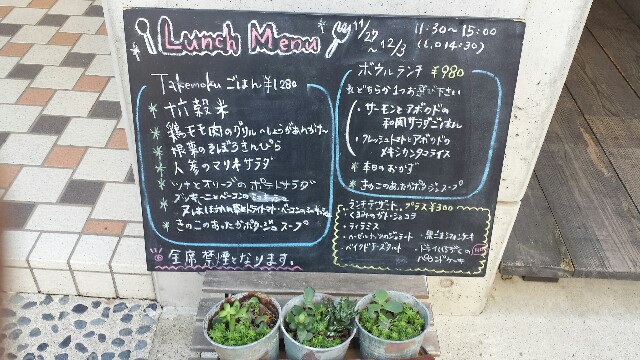 Lunch Menu
11/27
～12/3
11:30～15:00
(L.O 14:30)
Takemokuごはん ¥1280
十六穀米
鶏モモ肉のグリル～しょうがあんかけ～
根菜のそぼろきんぴら
人参のマリネサラダ
ツナとオリーブのポテトサラダ
きのこのあったかポタージュスープ
全席禁煙となります。
ボウルランチ ¥980
どちらか1つお選び下さい
サーモンとアボカドの
和風サラダごはん
フレッシュトマトとアボカドの
メキシカンタコライス
本日のおかず
きのこのあったかポタージュスープ
ランチデザート プラス¥300
くるみのガトーショコラ
・ティラミス
・ヘーゼルナッツのジェラート
・ベイクドチーズタルト
・黒ごまシフォンケーキ
パウンドケーキ